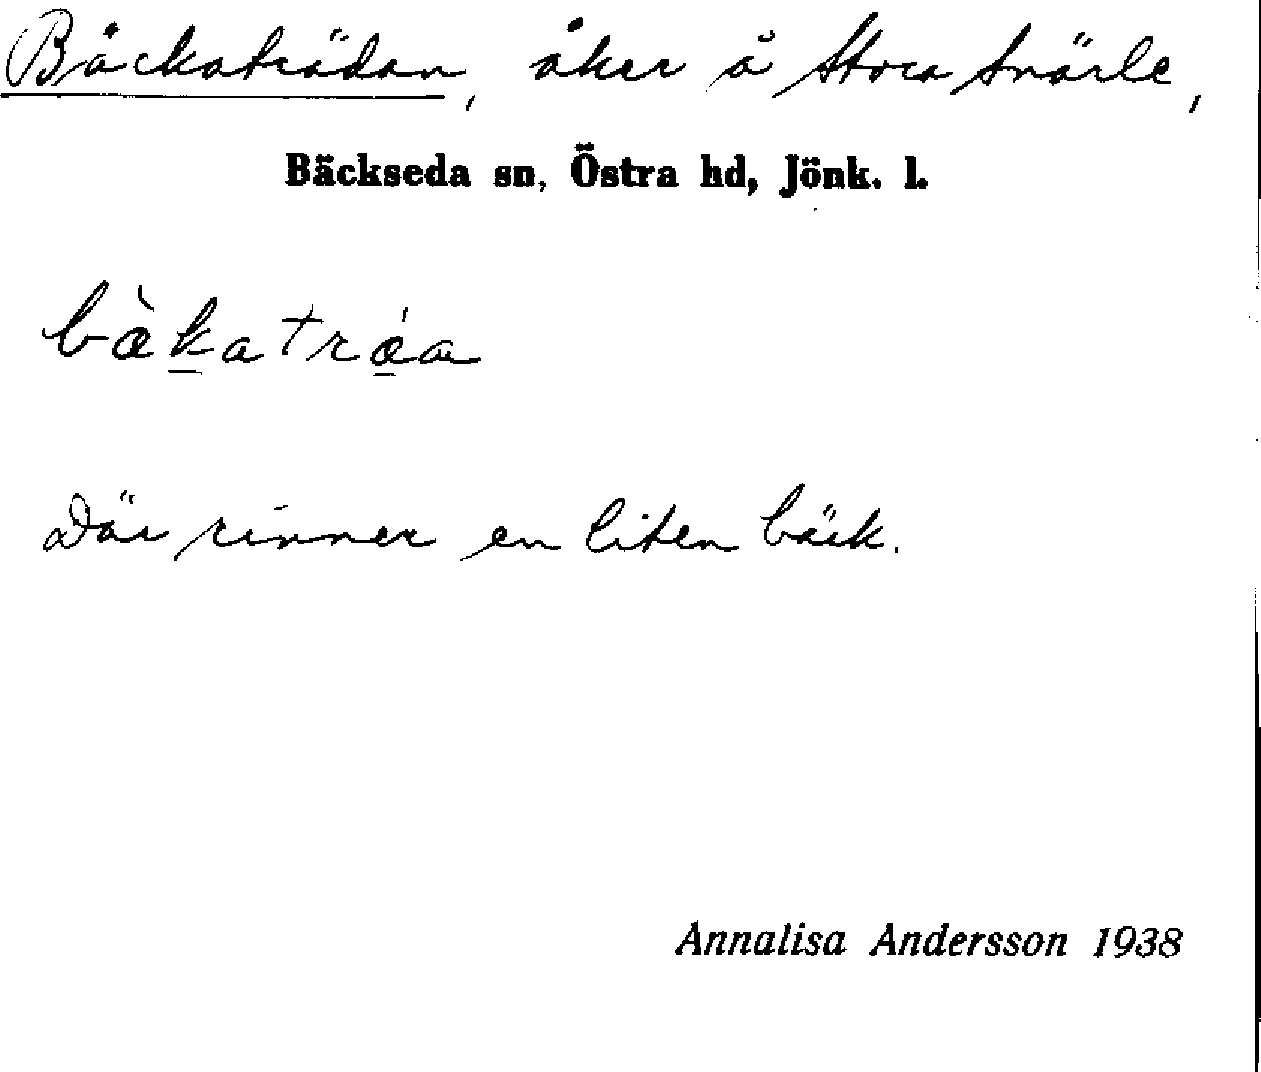 Bäckaträdan, åker å Stora Snärle,
Bäckseda sn, Östra hd, Jönk. l.
bæ̀ka trǽa
Där rinner en liten bäck.
Annalisa Andersson 1938